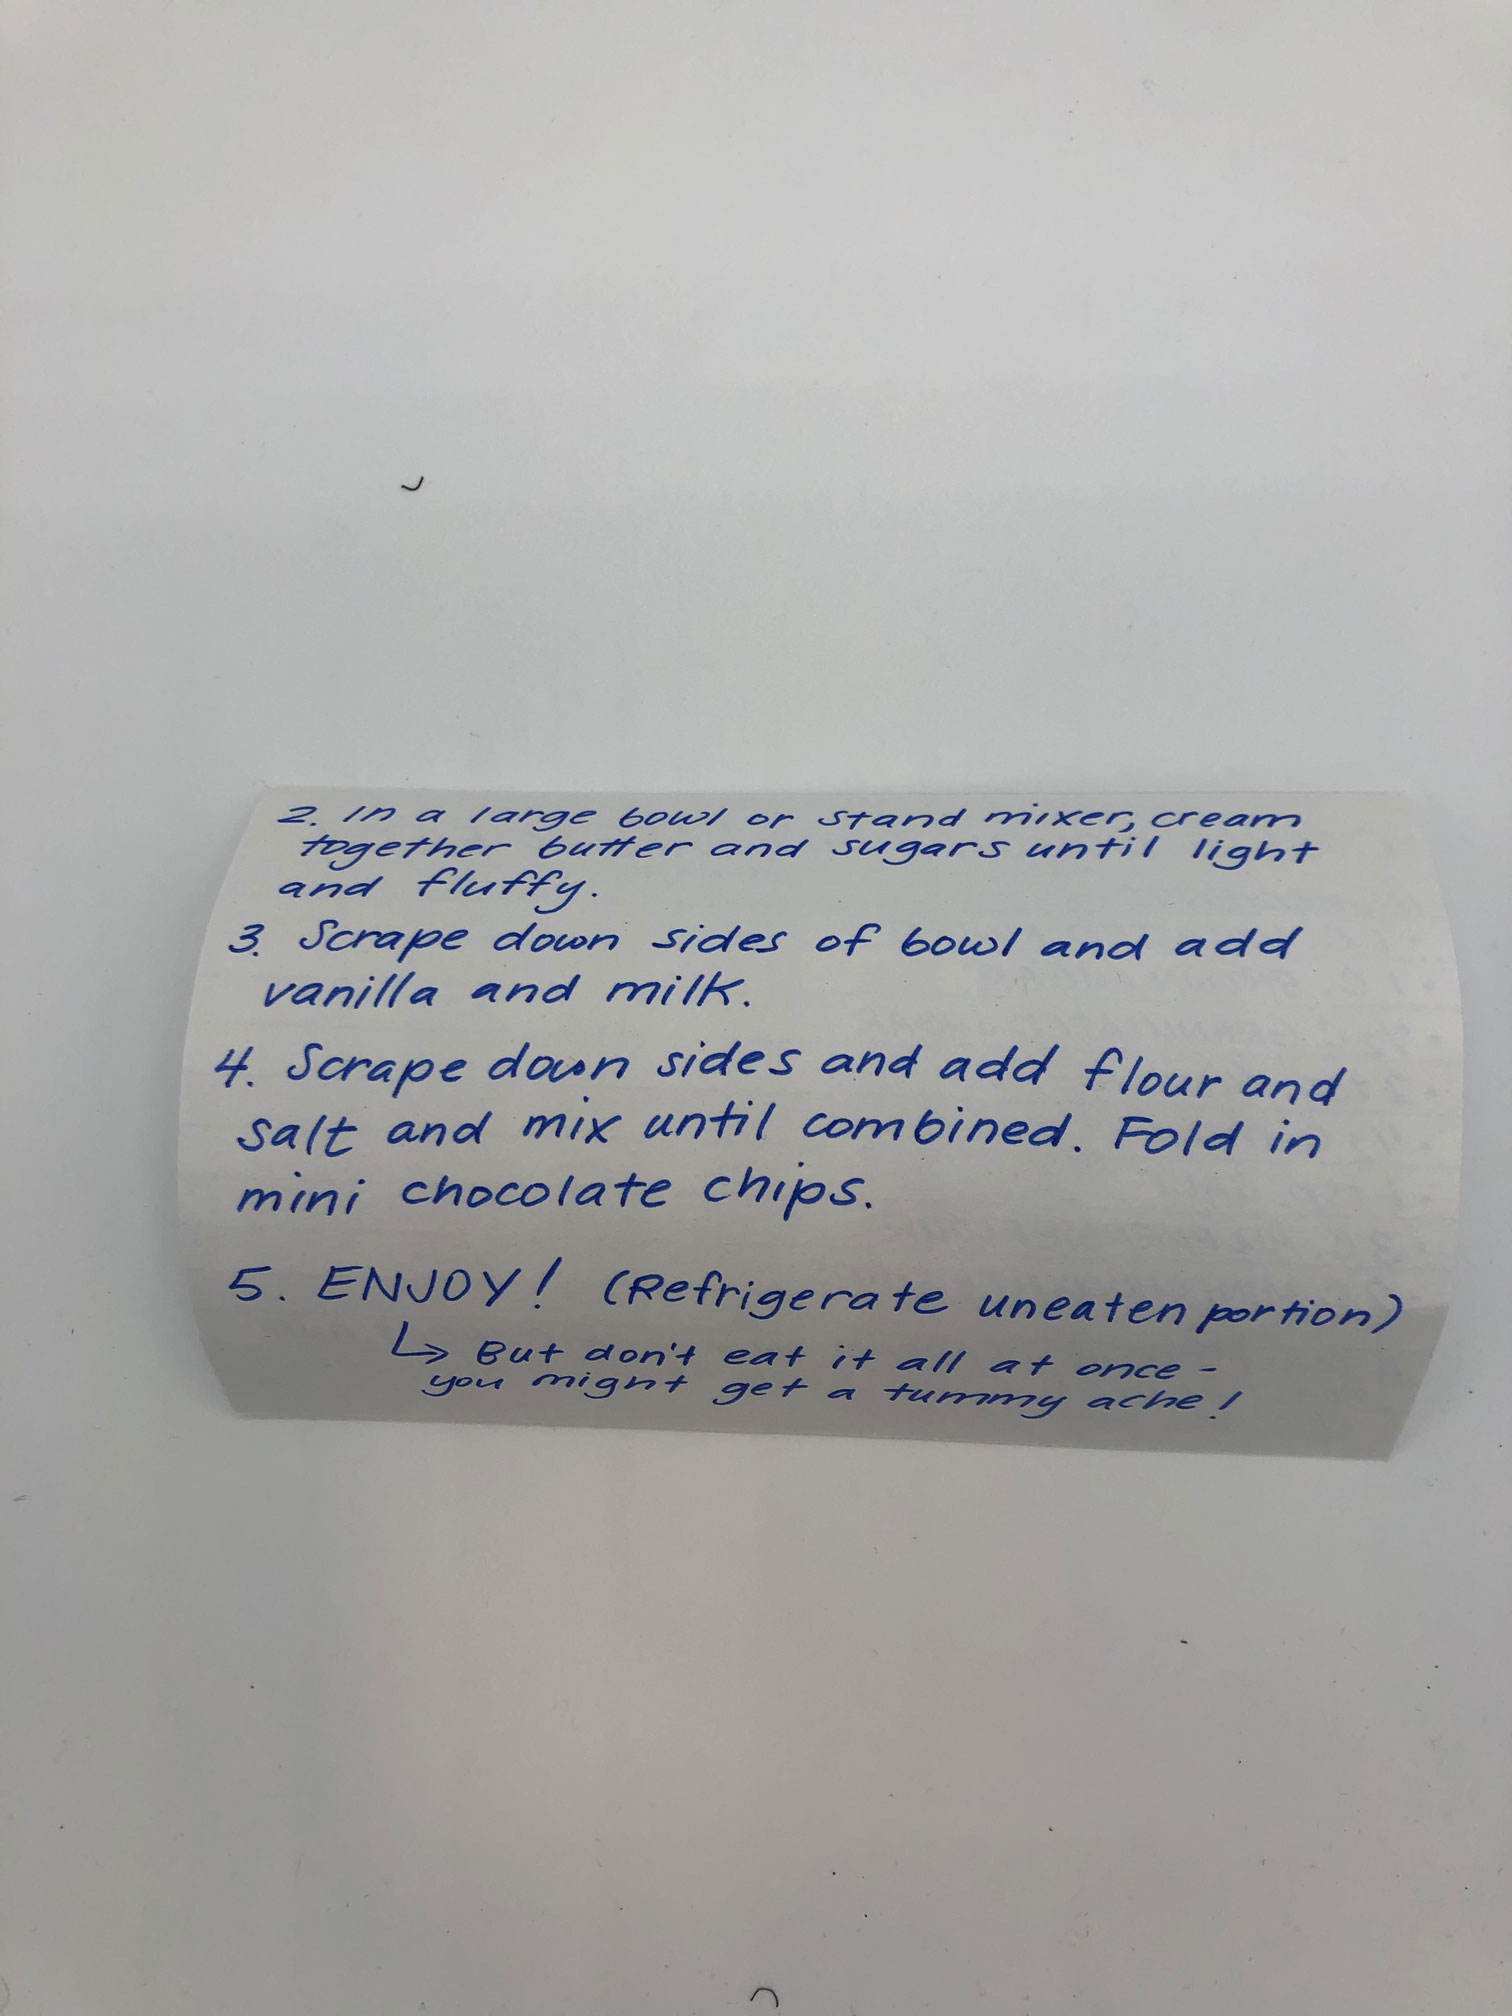 2. In a large bowl or stand mixer, cream
together butter and sugars until light
and fluffy.
3. Scrape down sides of bowl and add
vanilla and milk.
4. Scrape down sides and add flour and
salt and mix until combined. Fold in
mini chocolate chips.
5. ENJOY! (Refrigerate uneaten portion)
↳ But don't eat it all at once -
you might get a tummy ache!